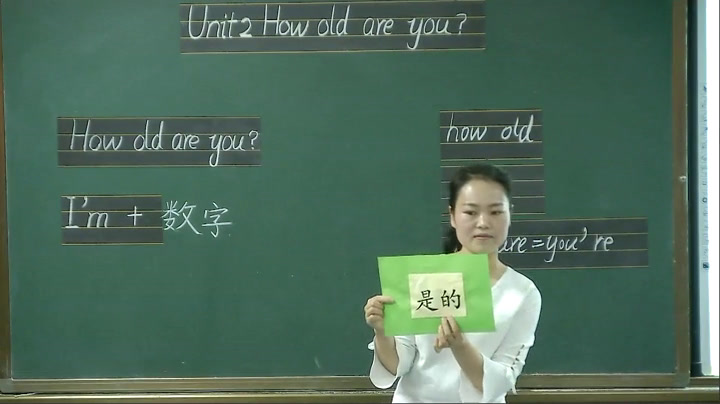 Unit2 How old are you?
How old are you?
I'm + 数字
how old
are=you're
是的